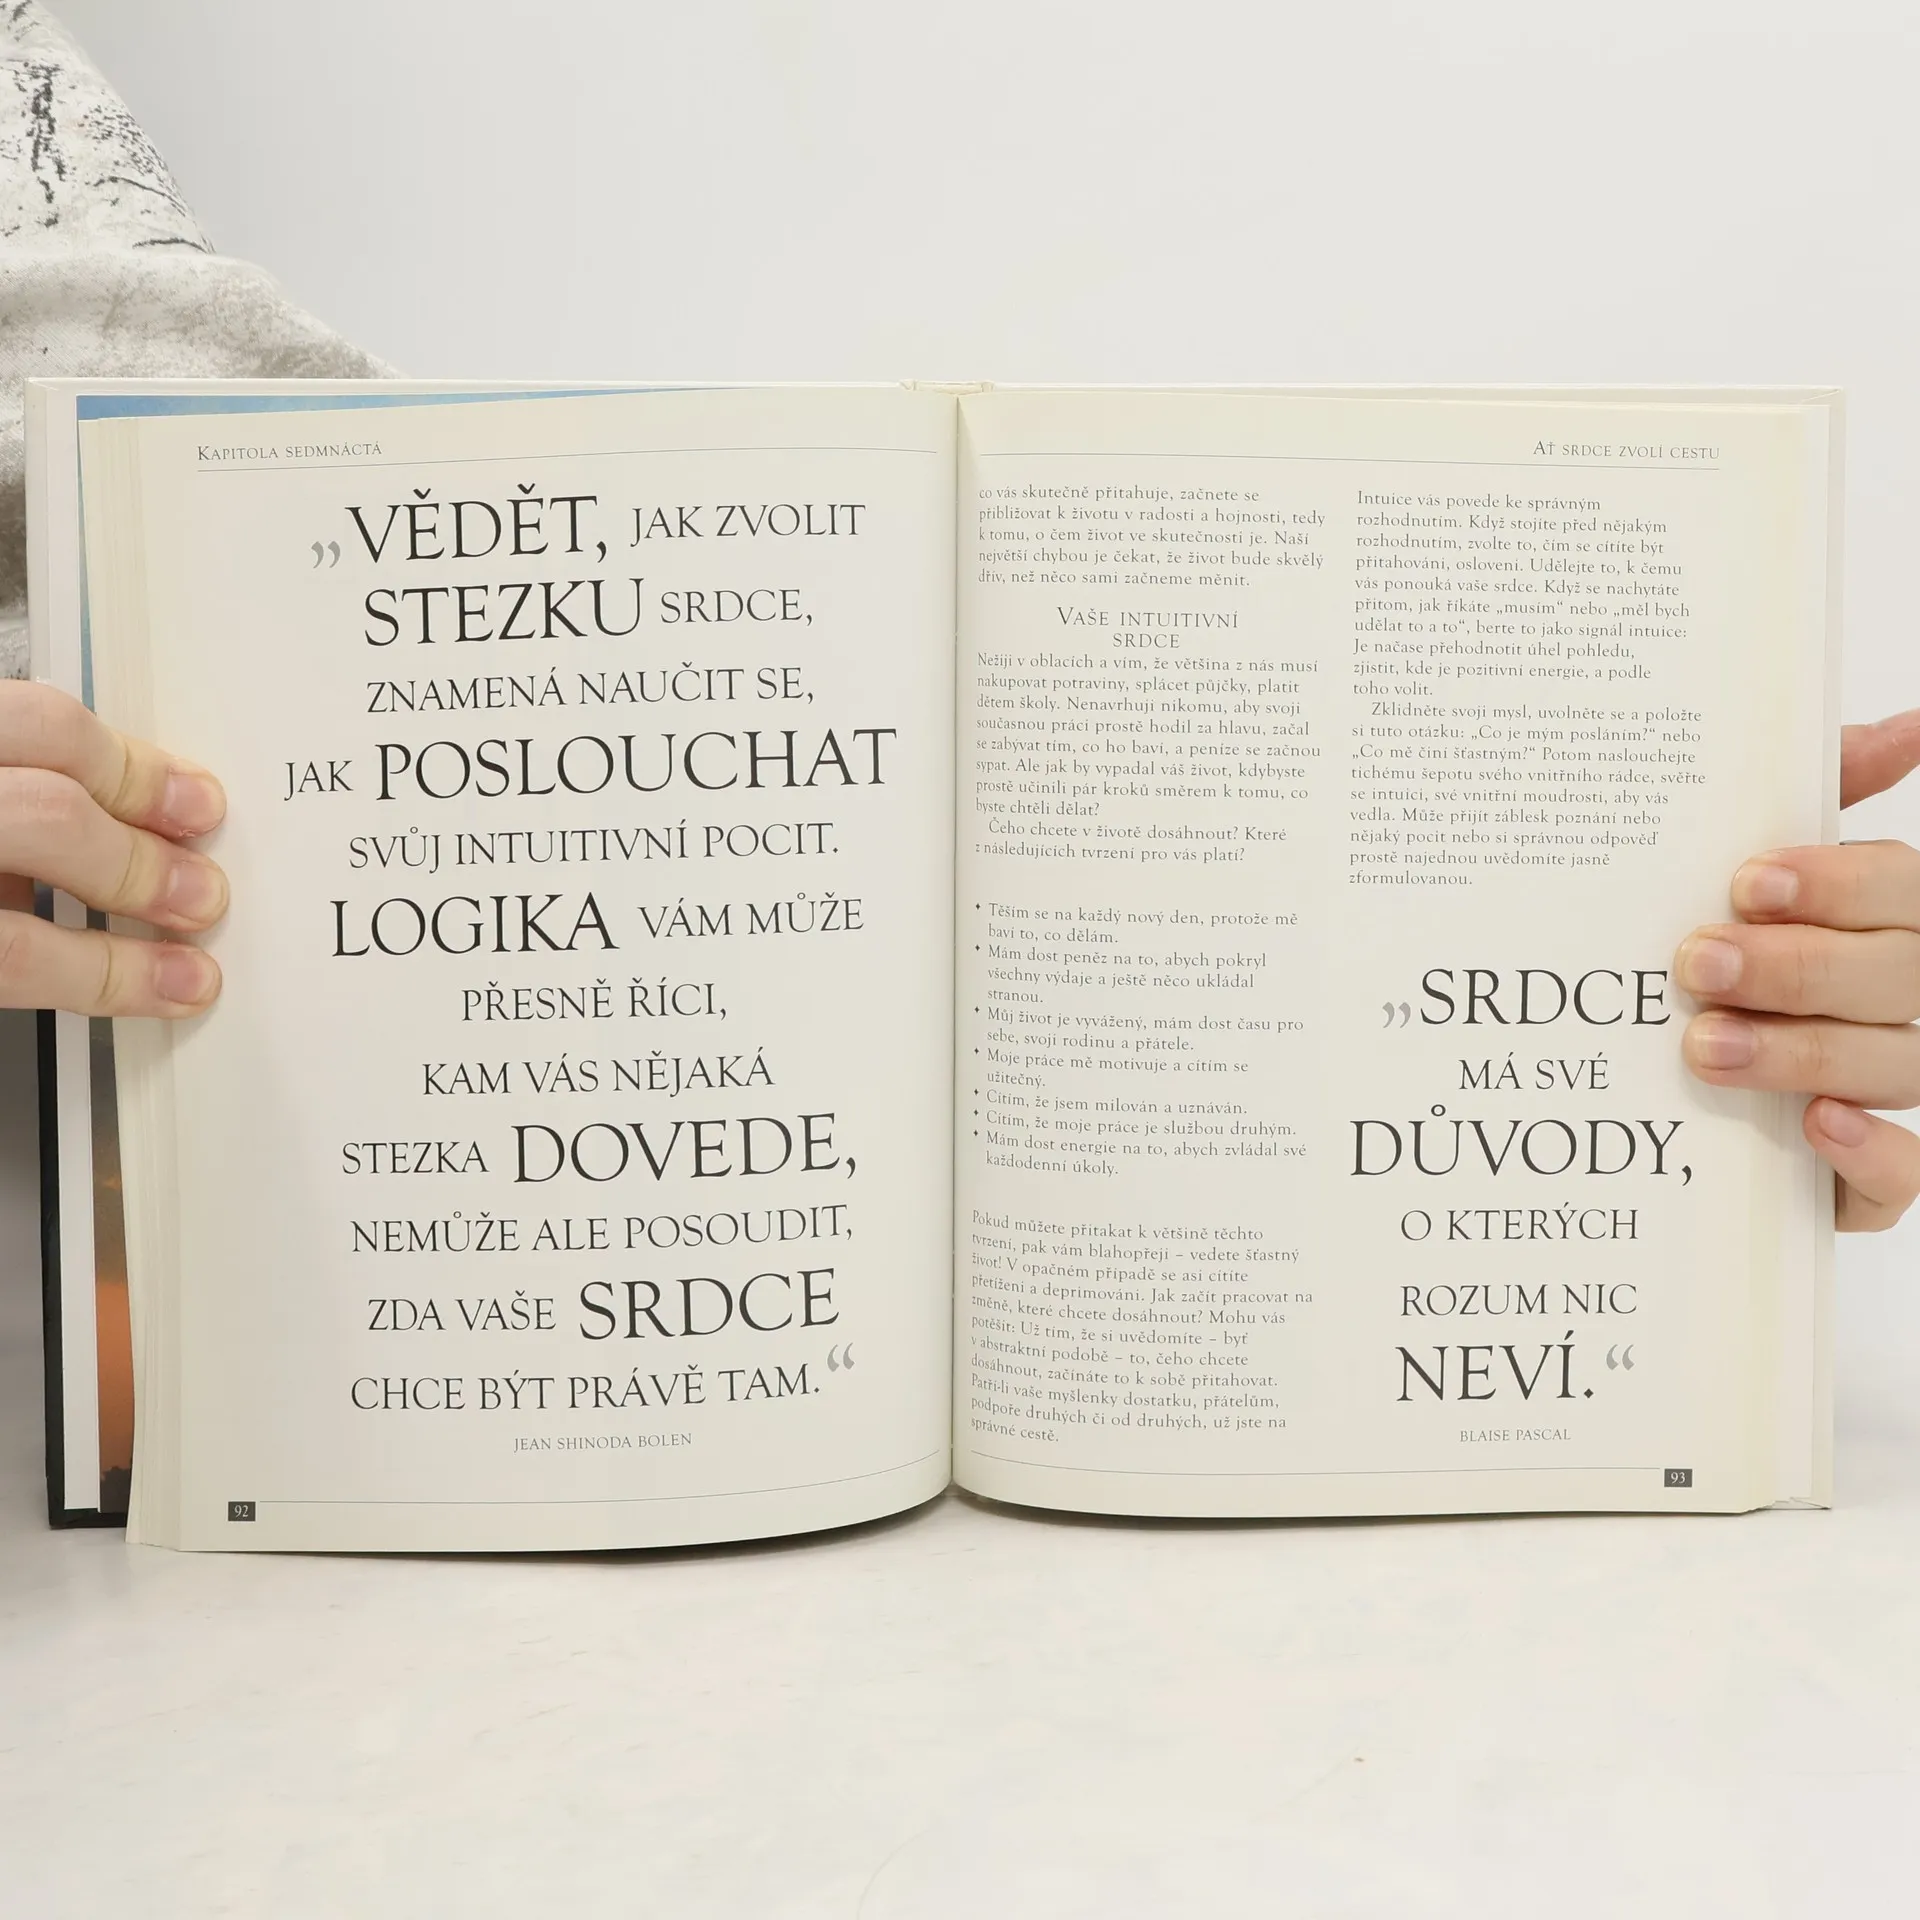 KAPITOLA SEDMNÁCTÁ
„VĚDĚT, JAK ZVOLIT
STEZKU SRDCE,
ZNAMENÁ NAUČIT SE,
JAK POSLOUCHAT
SVŮJ INTUITIVNÍ POCIT.
LOGIKA VÁM MŮŽE
PŘESNĚ ŘÍCI,
KAM VÁS NĚJAKÁ
STEZKA DOVEDE,
NEMŮŽE ALE POSOUDIT,
ZDA VAŠE SRDCE
CHCE BÝT PRÁVĚ TAM.“
JEAN SHINODA BOLEN
92
AŤ SRDCE ZVOLÍ CESTU
co vás skutečně přitahuje, začnete se
přibližovat k životu v radosti a hojnosti, tedy
k tomu, o čem život ve skutečnosti je. Naší
největší chybou je čekat, že život bude skvělý
dřív, než něco sami začneme měnit.
VAŠE INTUITIVNÍ
SRDCE
Nežiji v oblacích a vím, že většina z nás musí
nakupovat potraviny, splácet půjčky, platit
dětem školy. Nenavrhuji nikomu, aby svoji
současnou práci prostě hodil za hlavu, začal
se zabývat tím, co ho baví, a peníze se začnou
sypat. Ale jak by vypadal váš život, kdybyste
prostě učinili pár kroků směrem k tomu, co
byste chtěli dělat?
Čeho chcete v životě dosáhnout? Které
z následujících tvrzení pro vás platí?
✦ Těším se na každý nový den, protože mě
baví to, co dělám.
✦ Mám dost peněz na to, abych pokryl
všechny výdaje a ještě něco ukládal
stranou.
✦ Můj život je vyvážený, mám dost času pro
sebe, svoji rodinu a přátele.
✦ Moje práce mě motivuje a cítím se
užitečný.
✦ Cítím, že jsem milován a uznáván.
✦ Cítím, že moje práce je službou druhým.
✦ Mám dost energie na to, abych zvládal své
každodenní úkoly.
Pokud můžete přitakat k většině těchto
tvrzení, pak vám blahopřeji – vedete šťastný
život! V opačném případě se asi cítíte
přetíženi a deprimováni. Jak začít pracovat na
změně, které chcete dosáhnout? Mohu vás
potěšit: Už tím, že si uvědomíte – byť
v abstraktní podobě – to, čeho chcete
dosáhnout, začínáte to k sobě přitahovat.
Patří-li vaše myšlenky dostatku, přátelům,
podpoře druhých či od druhých, už jste na
správné cestě.
Intuice vás povede ke správným
rozhodnutím. Když stojíte před nějakým
rozhodnutím, zvolte to, čím se cítíte být
přitahováni, osloveni. Udělejte to, k čemu
vás ponouká vaše srdce. Když se nachytáte
přitom, jak říkáte „musím“ nebo „měl bych
udělat to a to“, berte to jako signál intuice:
Je načase přehodnotit úhel pohledu,
zjistit, kde je pozitivní energie, a podle
toho volit.
Zklidněte svoji mysl, uvolněte se a položte
si tuto otázku: „Co je mým posláním?“ nebo
„Co mě činí šťastným?“ Potom naslouchejte
tichému šepotu svého vnitřního rádce, svěřte
se intuici, své vnitřní moudrosti, aby vás
vedla. Může přijít záblesk poznání nebo
nějaký pocit nebo si správnou odpověď
prostě najednou uvědomíte jasně
zformulovanou.
„SRDCE
MÁ SVÉ
DŮVODY,
O KTERÝCH
ROZUM NIC
NEVÍ.“
BLAISE PASCAL
93